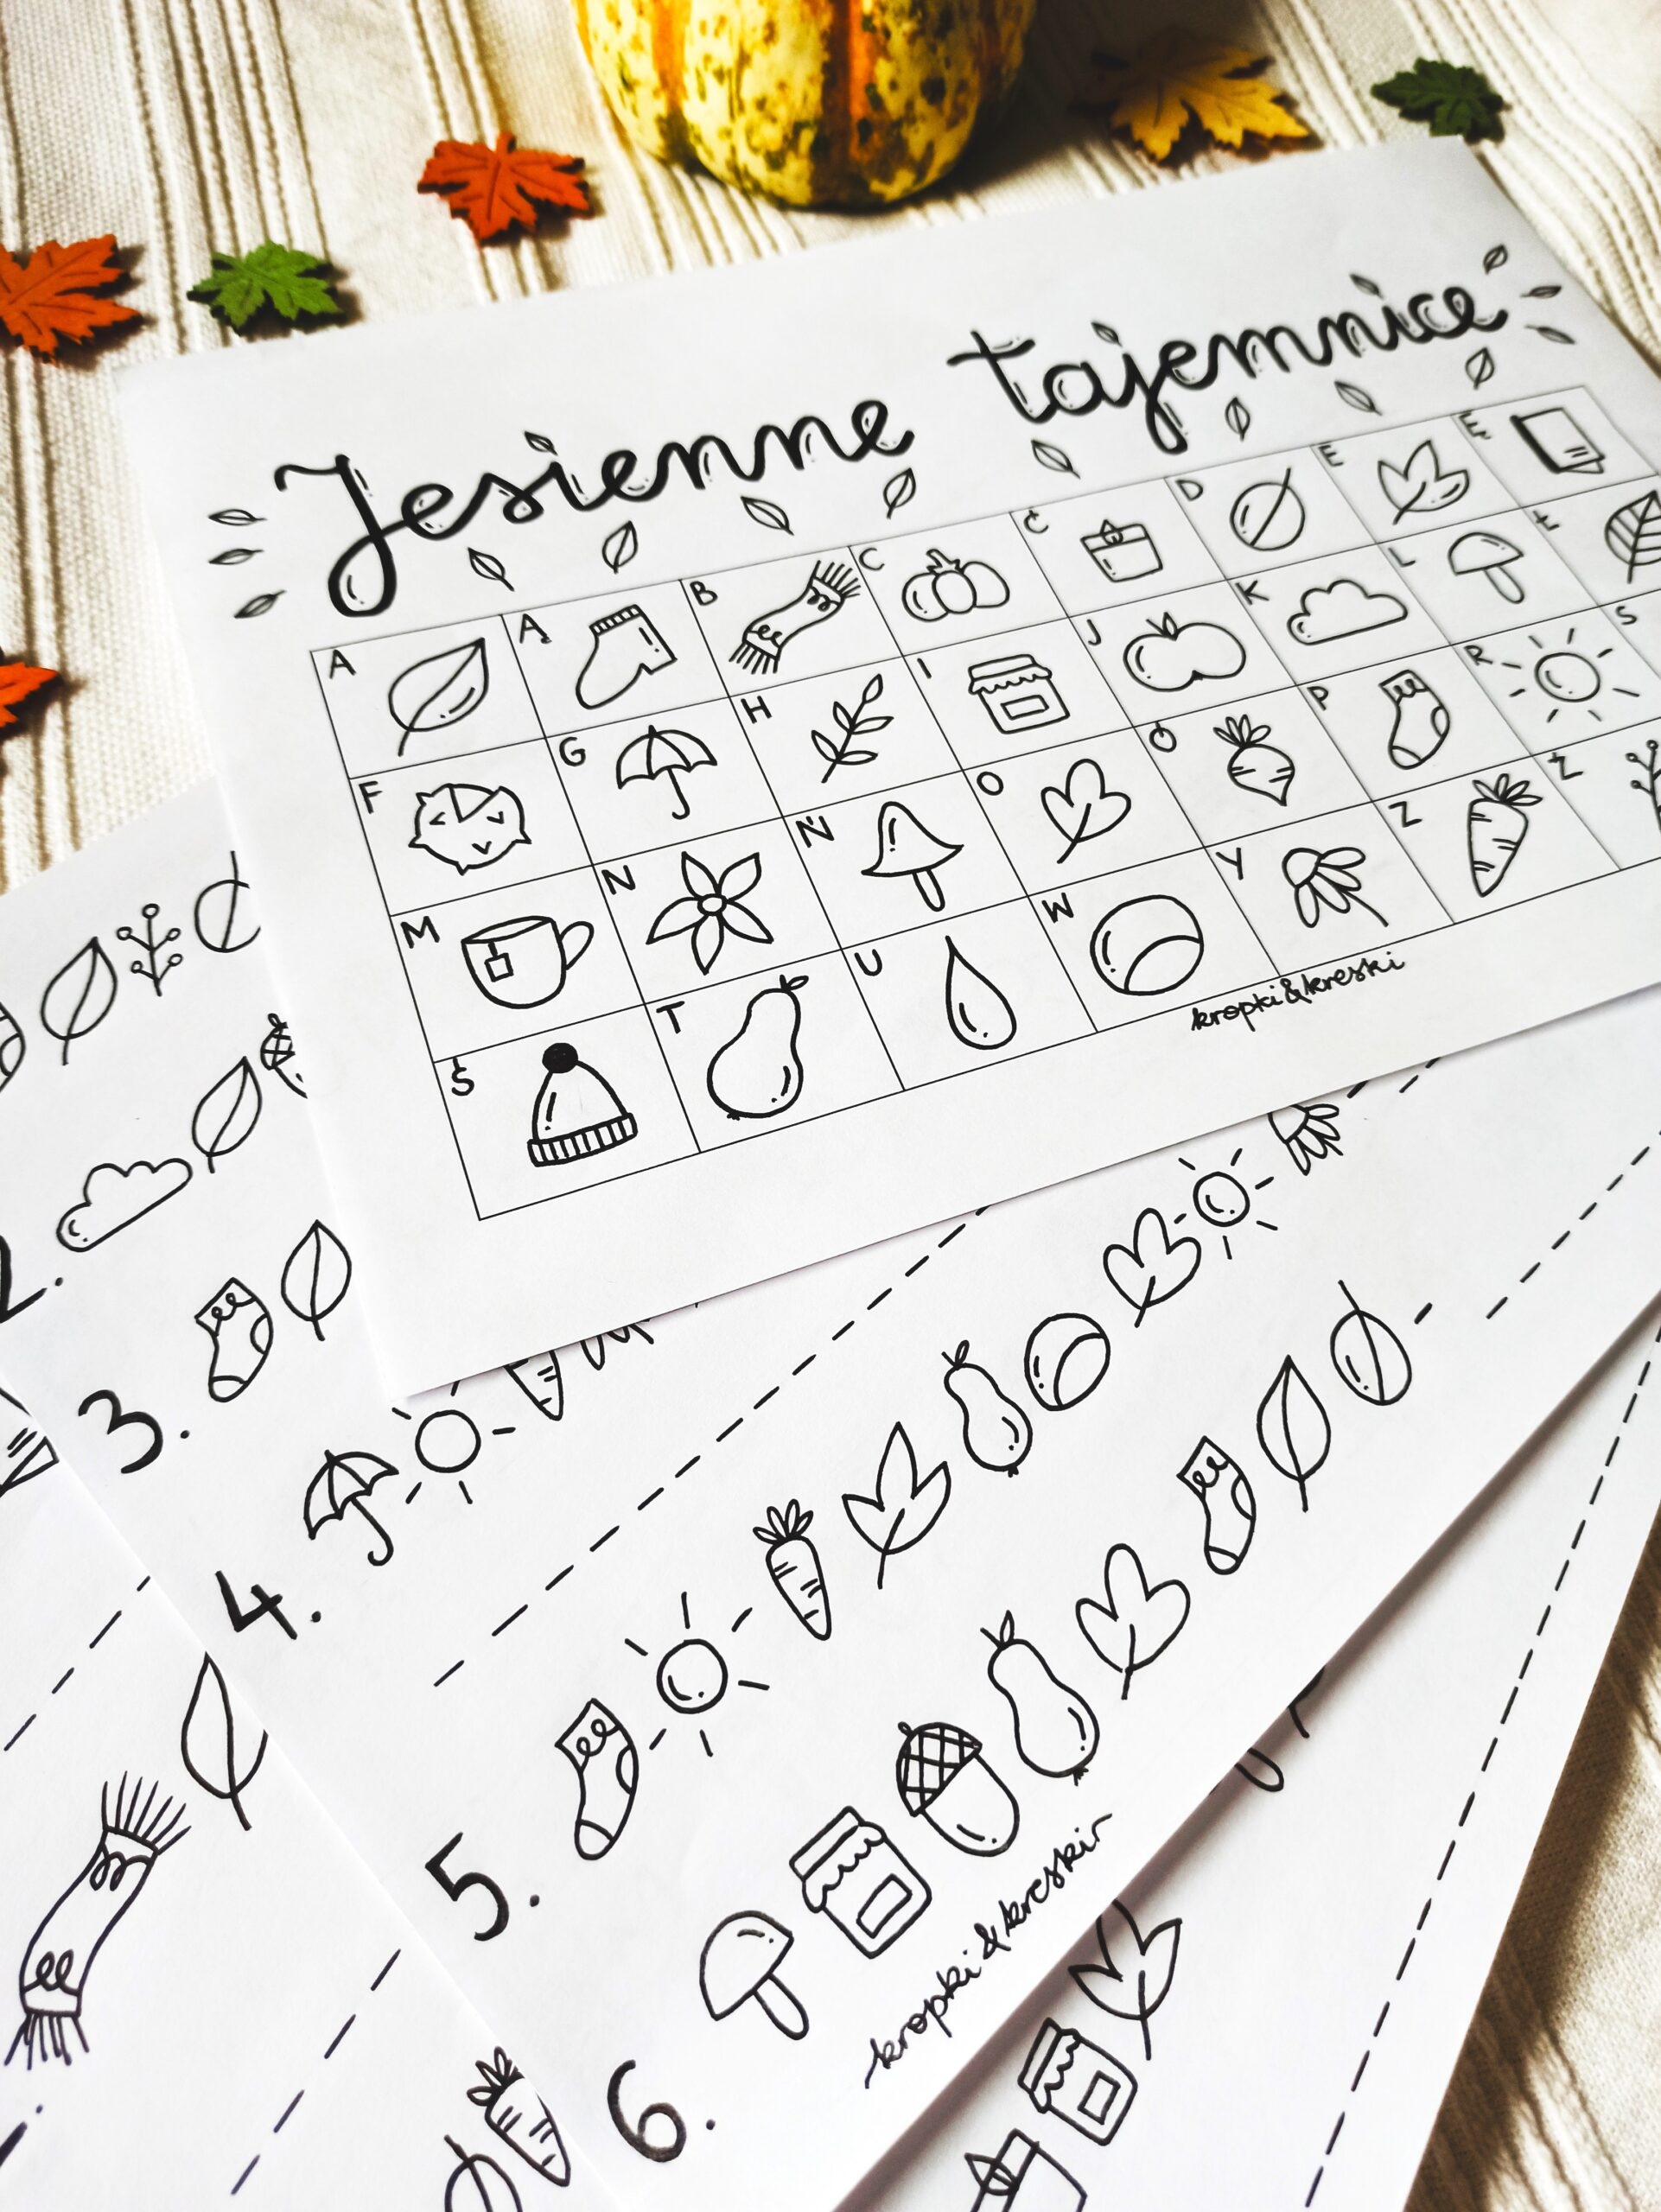 Jesienne tajemnice
A Ą B C Ć D E Ę
F G H I J K L Ł
M N Ń O Ó P R S
Ś T U W Y Z Ż
kropki&kreski
2.
3.
4.
5.
6.
kropki&kreski